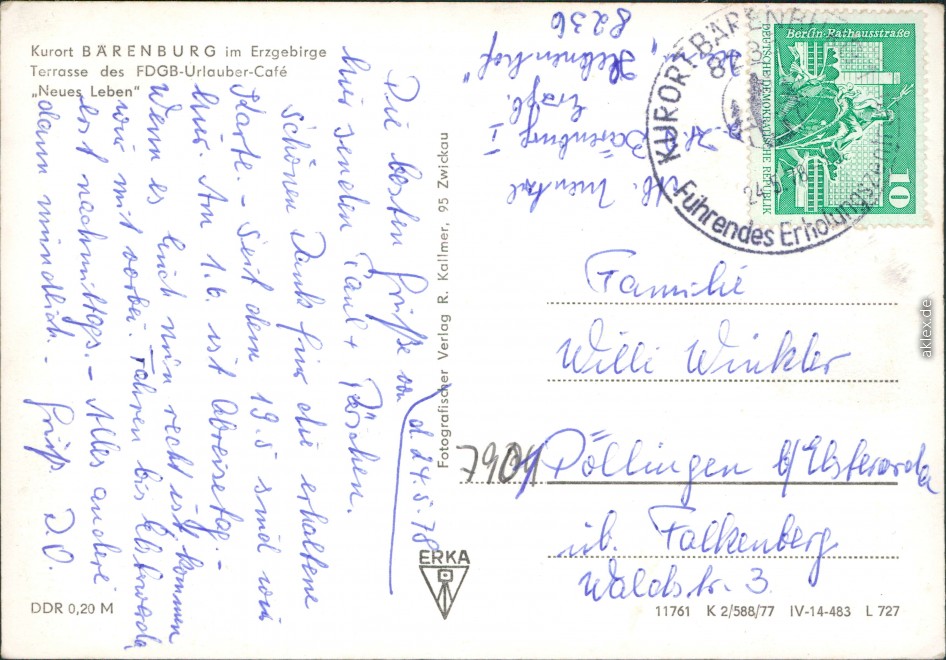 Kurort BÄRENBURG im Erzgebirge
Terrasse des FDGB-Urlauber-Café
„Neues Leben"
d. 24.5.78
Die besten Grüße von
hier senden Paul + 
Schönen Dank für die erhaltene
Karte. - Seit dem 19.5 sind wir
hier. Am 1.6. ist Abreisetag. -
Wenn es Euch nun recht ist, kommen
wir mit vorbei. Fahren bis Elsterwerda
erst nachmittags. - Alles andere
dann mündlich. - Gruß D.O.
DDR 0,20 M
Fotografischer Verlag R. Kallmer, 95 Zwickau
ERKA
Bärenburg i.
Erzgb.
8236
KURORT BÄRENBURG
8
24.5.78
Führendes Erholungszentrum
Berlin-Rathausstraße
DEUTSCHE DEMOKRATISCHE REPUBLIK
10
Familie
Willi Winkler
7904 Döllingen b/Elsterwerda
üb. Falkenberg
Waldstr. 3
11761 K 2/588/77 IV-14-483 L 727
aklex.de